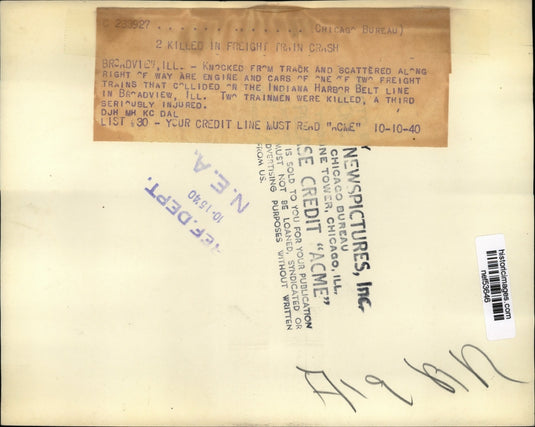 C 283927 . . . . . . . . . . . . . . (CHICAGO BUREAU)
2 KILLED IN FREIGHT TRAIN CRASH
BROADVIEW, ILL. - KNOCKED FROM TRACK AND SCATTERED ALONG
RIGHT OF WAY ARE ENGINE AND CARS OF ONE OF TWO FREIGHT
TRAINS THAT COLLIDED ON THE INDIANA HARBOR BELT LINE
IN BROADVIEW, ILL. TWO TRAINMEN WERE KILLED, A THIRD
SERIOUSLY INJURED.
DJH MH KC DAL
LIST #30 - YOUR CREDIT LINE MUST READ "ACME" 10-10-40
NEWSPICTURES, Inc.
CHICAGO BUREAU
TOWER, CHICAGO, ILL.
SE CREDIT "ACME"
IS SOLD TO YOU FOR YOUR PUBLICATION
MUST NOT BE LOANED, SYNDICATED OR
ADVERTISING PURPOSES WITHOUT WRITTEN
FROM US.
REF. DEPT.
10 15 40
N. E. A.
historicimages.com